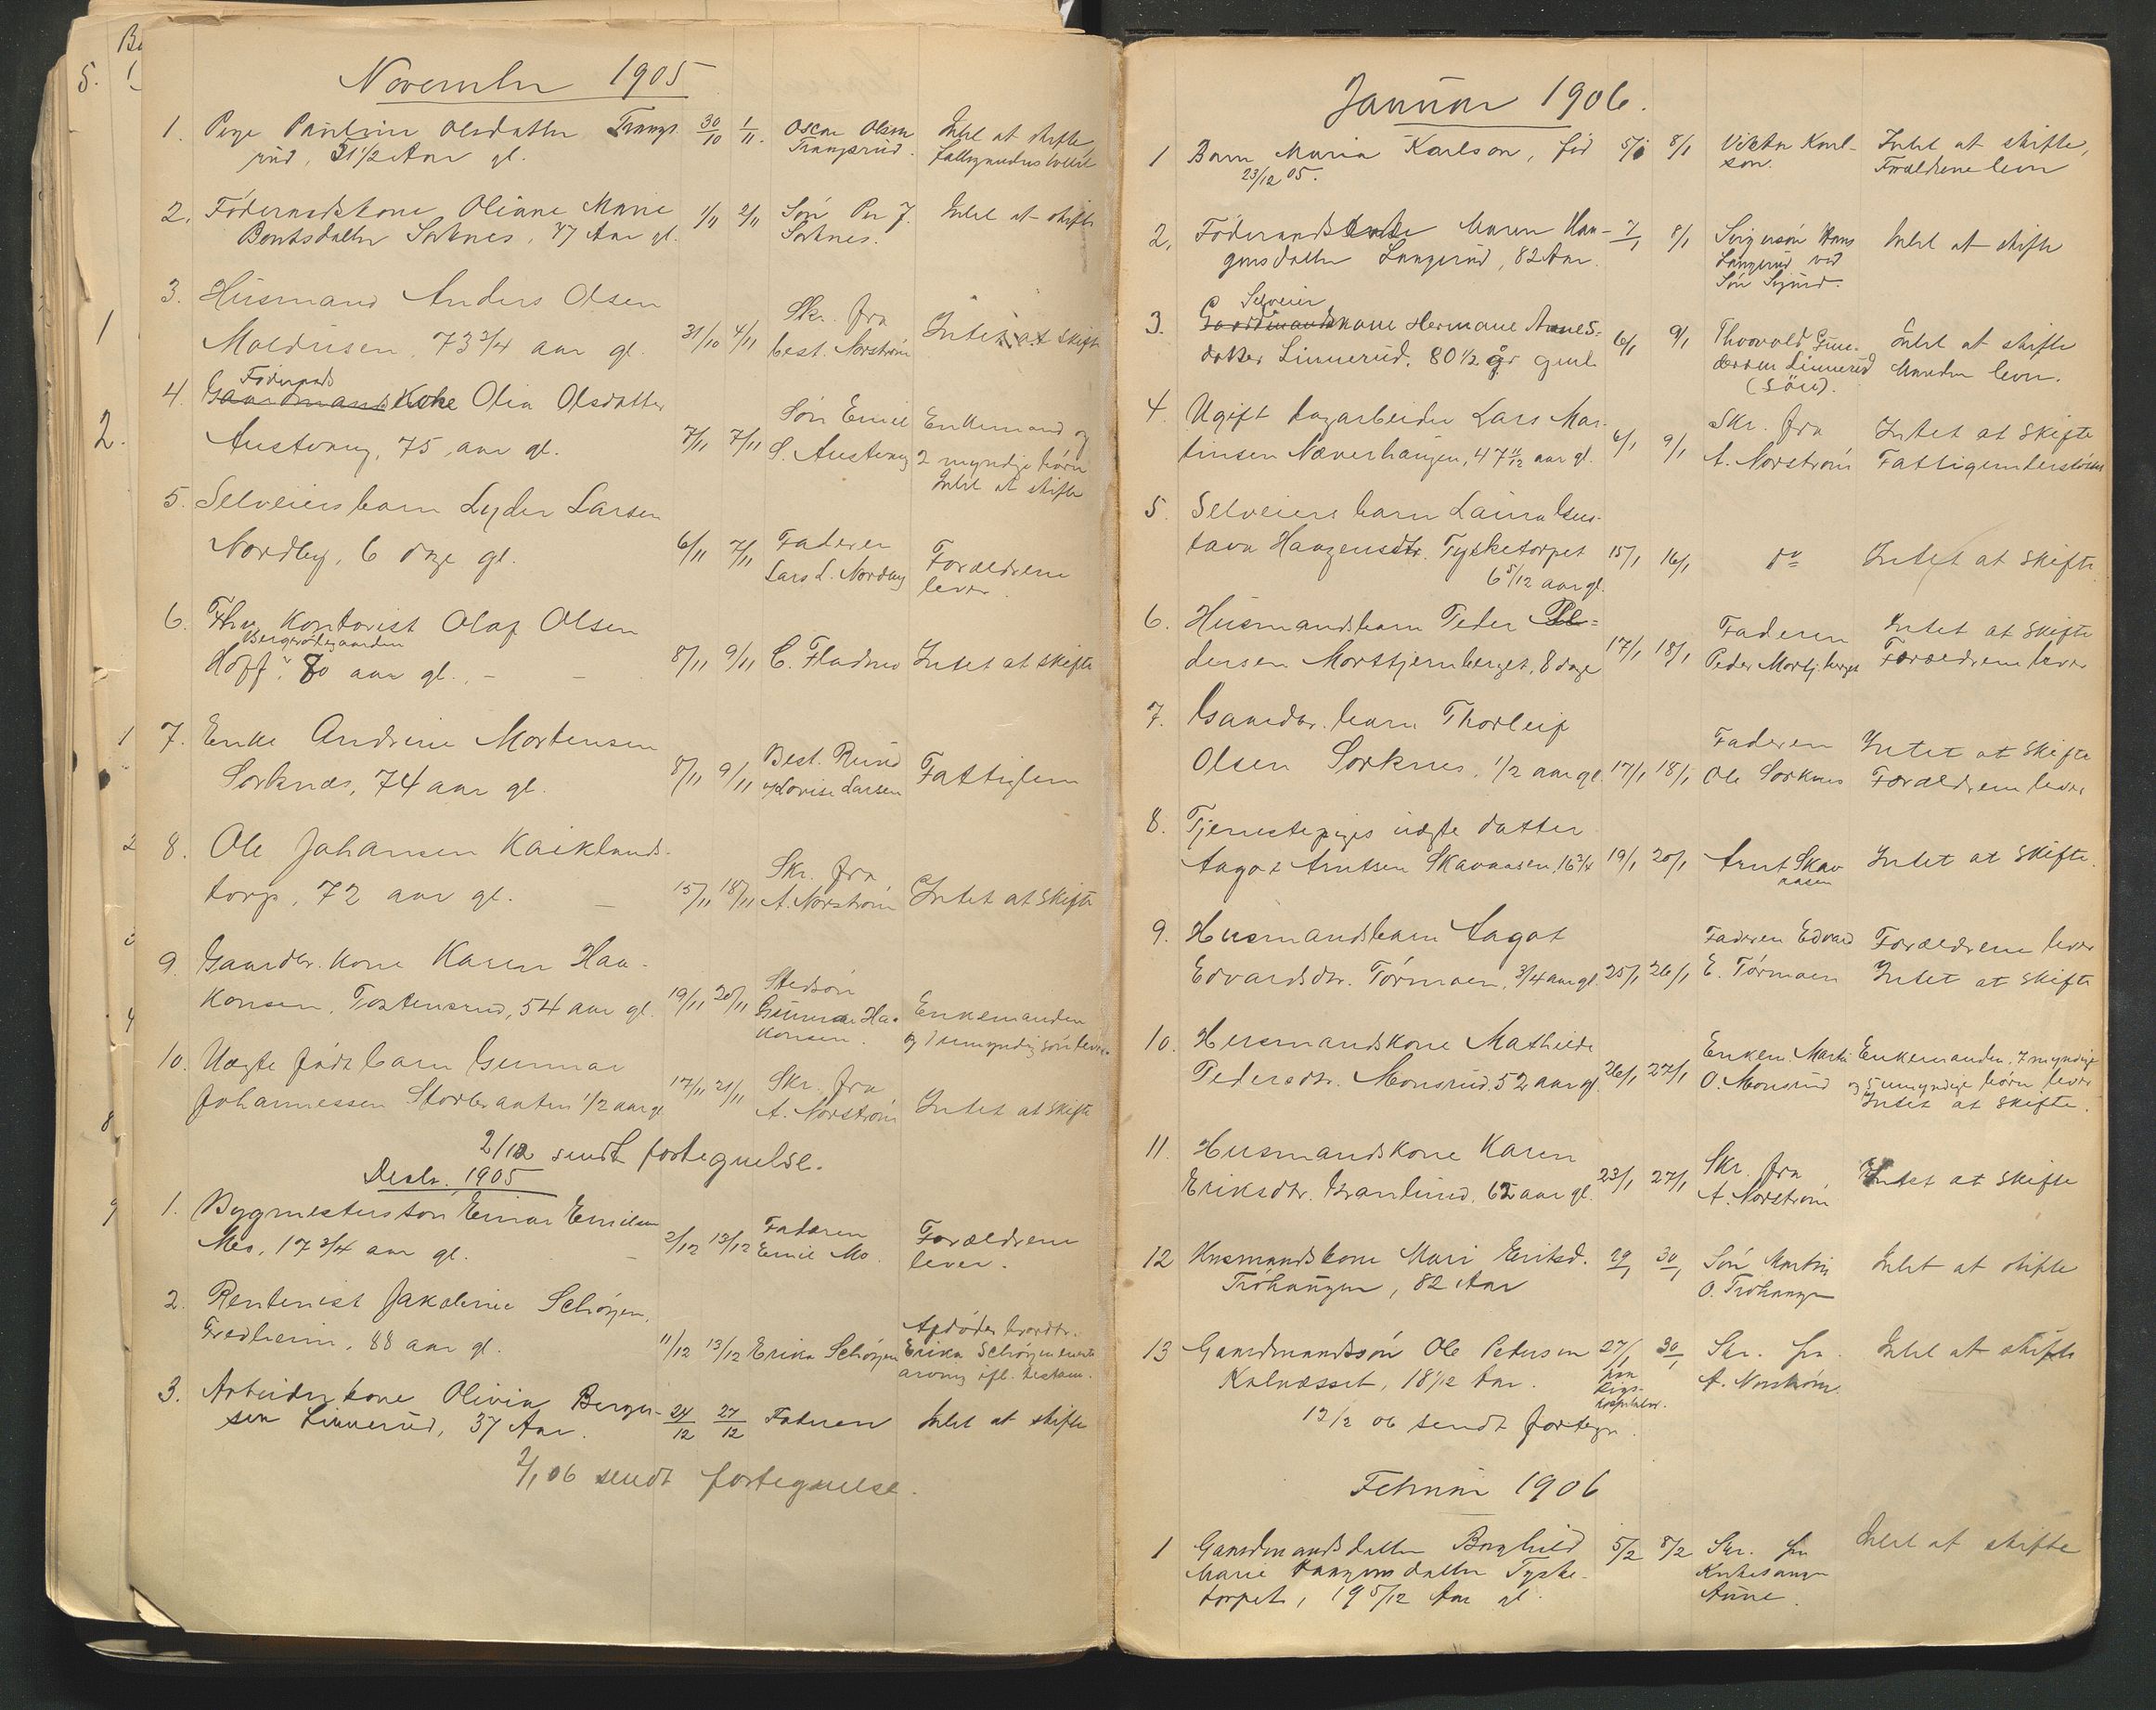 November 1905
1. Pige Pauline Olsdatter Trangs- 30/10 1/11. Oscar Olsen Intet at skifte,
rud, 31 1/2 Aar gl. Trangsrud.
2. Föderaadskone Oliane Marie 1/11 2/11 Søn Per J. Intet at skifte
Berntsdatter Sorknes, 77 Aar gl. Sorknes.
3. Husmand Anders Olsen Skr. fra
Moldusen, 73 3/4 aar gl. 31/10 4/11 best. Norström Intet at skifte
Föderaads
4. Gaardmands Kone Olia Olsdatter Søn Emil Enkemand og
Austvang, 75 aar gl. 7/11 7/11 S. Austvang 2 myndige børn
Intet at skifte
5. Selveiers barn Lyder Larsen Faderen
Nordby, 6 dage gl. 6/11 7/11 Lars L. Nordby Forældrene
lever.
6. Fhv. Kontorist Olaf Olsen
Hoff, 70 aar gl. 8/11 9/11 C. Fladmo Intet at skifte
7. Enke Andrine Mortensen Best. Ruud
Sorknæs, 74 aar gl. 8/11 9/11 v/Lovise Larsen Fattiglem
8. Ole Johansen Kaiklands- Skr. fra
torp, 72 aar gl. 15/11 18/11 A. Norström Intet at skifte
9. Gaardbr. kone Karen Haa- Stedsön
konsen, Tostensrud, 54 aar gl. 19/11 20/11 Gunnar Haa- Enkemanden
konsen. og 1 umyndig søn lever
10. Uægte født barn Gunnar Skr. fra
Johannessen Storbraaten 1/2 aar gl 17/11 21/11 A. Norström Intet at skifte
2/12 sendt fortegnelse.
Decbr. 1905
1. Bygmesters søn Einar Emilsen Faderen Forældrene
Mo, 17 3/4 aar gl. 2/12 13/12 Emil Mo. lever.
2. Rentenist Jakobine Schöyen, Afdødes brordtr.
Fredheim, 88 aar gl. 11/12 13/12 Erika Schöyen Erika Schöyen eneste
arving ifl. testam.
3. Arbeiderkone Olivia Berger- 24/12 27/12 Faderen Intet at skifte
sen Linnerud, 37 Aar.
2/1 06 sendt fortegnelse.
Januar 1906.
1 Barn Maria Karlson, fød 5/1 8/1 Viktor Karl- Intet at skifte,
23/12 05. son. Forældrene lever
2. Föderaadsenke Maren Haa- 7/1 8/1 Svigersøn Hans Intet at skifte
gensdatter Langerud, 82 Aar. Langerud ved
Søn Sigurd.
Selveier
3. Gaardmandskone Hermane Arnes- 6/1 9/1 Thorvald Gun- Intet at skifte
datter Linnerud. 80 1/2 år gml. dersen Linnerud Manden lever.
(Sön).
4. Ugift dagarbeider Lars Mar- Skr. fra Intet at skifte
tinsen Næverhaugen, 47 11/12 aar gl. 6/1 9/1 A. Norström Fattigunderstöttet
5. Selveiers barn Laura Gus-
tava Haagensdtr. Tysketorpet 15/1 16/1 do Intet at skifte
6 5/12 aar gl.
6. Husmandsbarn Peder Pe- Faderen Intet at skifte
dersen Morttjernberget, 8 dage 17/1 18/1 Peder Mortj.berget Forældrene lever
7. Gaardbr. barn Thorleif Faderen Intet at skifte
Olsen Sorknes, 1/2 aar gl. 17/1 18/1 Ole Sorknes Forældrene lever
8. Tjenestepiges uægte datter
Aagot Arntsen Skavaasen, 16 3/4 19/1 20/1 Arnt Skav Intet at skifte.
aasen
9. Husmandsbarn Aagot Faderen Edvard Forældrene lever
Edvardsdtr. Törmoen, 3/4 aar gl. 25/1 26/1 E. Törmoen Intet at skifte
10. Husmandskone Mathilde Enkem. Martin Enkemanden, 7 myndige
Pedersdtr. Monsrud. 52 aar gl. 26/1 27/1 O. Monsrud og 5 umyndige børn lever
Intet at skifte.
11. Husmandskone Karen Skr. fra
Eriksdtr. Granlund, 62 aar gl. 23/1 27/1 A. Norström Intet at skifte
12 Husmandskone Mari Eriksd. 29/1 30/1 Søn Martin Intet at skifte
Tröhaugen, 82 Aar O. Tröhaugen
13 Gaardmandssøn Ole Pedersen 27/1 30/1 Skr. fra Intet at skifte
Kalnæsset, 18 1/12 Aar. paa A. Norström.
Rigs-
hospitalet.
12/2 06 sendt fortegn.
Februar 1906
1 Gaardmandsdatter Borghild 5/2 8/2 Skr. fra Intet at skifte
Marie Haagensdatter Tyske- Kirkesanger
torpet, 19 5/12 Aar gl. Aune.